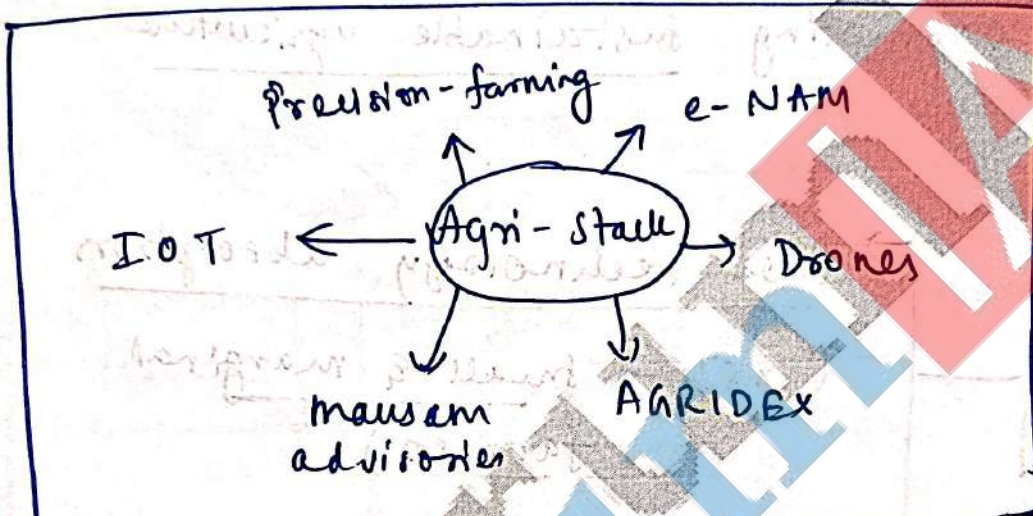 Precision-farming
e-NAM
IOT
Agri-stack
Drones
mausam
advisories
AGRIDEX